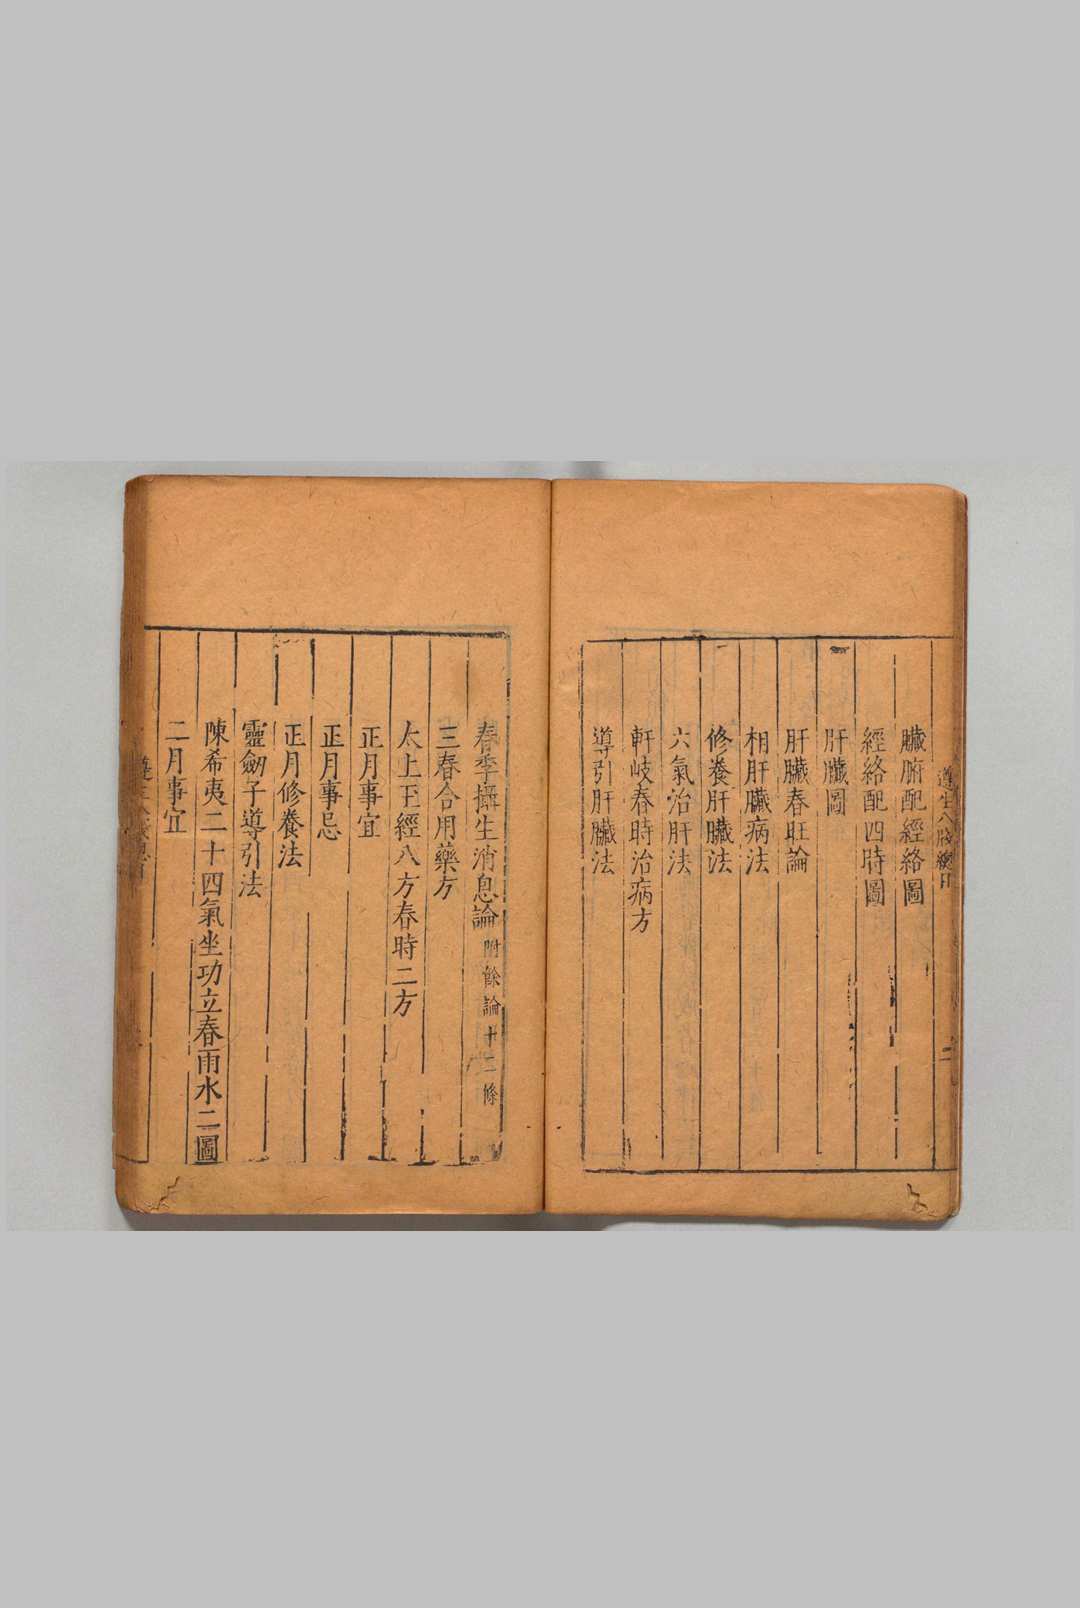 遵生八牋總目
二
臟腑配經絡圖
經絡配四時圖
肝臟圖
肝臟春旺論
相肝臟病法
修養肝臟法
六氣治肝法
軒岐春時治病方
導引肝臟法
春季攝生消息論 附餘論十二條
三春合用藥方
太上玉經八方春時二方
正月事宜
正月事忌
正月修養法
靈劒子導引法
陳希夷二十四氣坐功立春雨水二圖
二月事宜